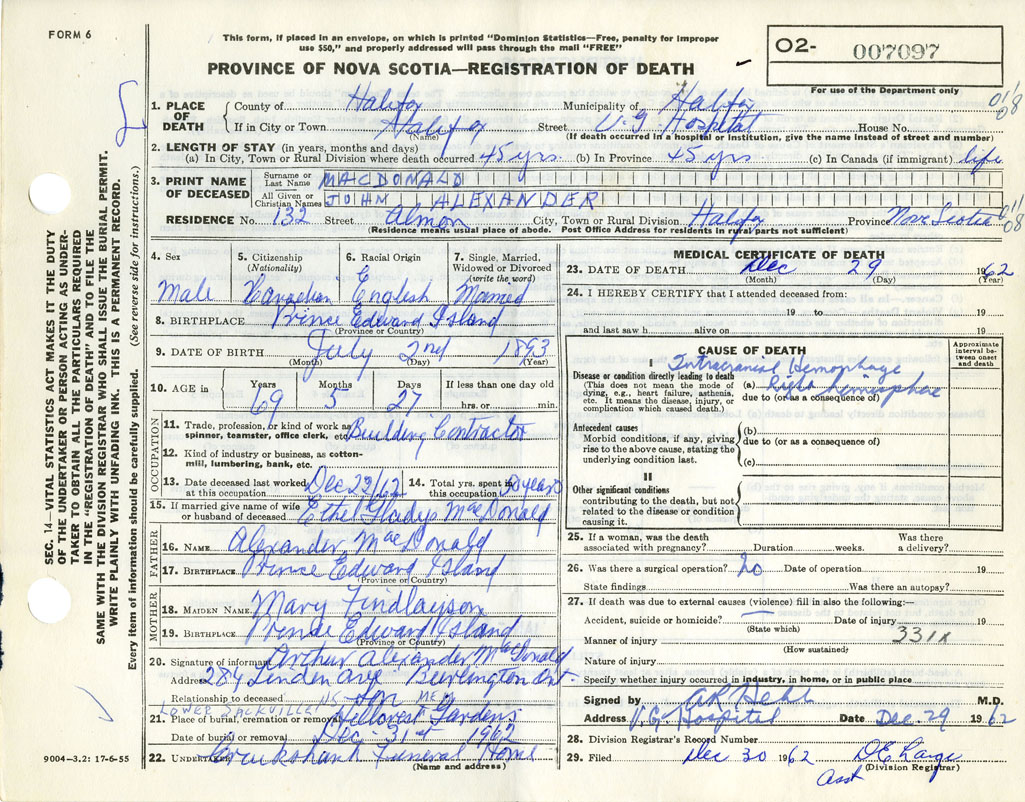 FORM 6
This form, if placed in an envelope, on which is printed "Dominion Statistics—Free, penalty for improper
use $50," and properly addressed will pass through the mail "FREE"
PROVINCE OF NOVA SCOTIA—REGISTRATION OF DEATH
02- 007097
For use of the Department only
SEC. 14—VITAL STATISTICS ACT MAKES IT THE DUTY
OF THE UNDERTAKER OR PERSON ACTING AS UNDER-
TAKER TO OBTAIN ALL THE PARTICULARS REQUIRED
IN THE "REGISTRATION OF DEATH" AND TO FILE THE
SAME WITH THE DIVISION REGISTRAR WHO SHALL ISSUE THE BURIAL PERMIT.
WRITE PLAINLY WITH UNFADING INK. THIS IS A PERMANENT RECORD.
Every item of information should be carefully supplied. (See reverse side for instructions.)
1. PLACE OF DEATH
County of Halifax Municipality of Halifax
If in City or Town Halifax Street V.G Hospital House No.
(Name) (If death occurred in a hospital or institution, give the name instead of street and number)
01/8
08
2. LENGTH OF STAY (in years, months and days)
(a) In City, Town or Rural Division where death occurred 45 yrs (b) In Province 45 yrs (c) In Canada (if immigrant) life
3. PRINT NAME OF DECEASED
Surname or Last Name MACDONALD
All Given or Christian Names JOHN ALEXANDER
RESIDENCE No. 132 Street Almon City, Town or Rural Division Halifax Province Nova Scotia
(Residence means usual place of abode. Post Office Address for residents in rural parts not sufficient)
08
4. Sex Male
5. Citizenship (Nationality) Canadian
6. Racial Origin English
7. Single, Married, Widowed or Divorced (write the word) Married
8. BIRTHPLACE Prince Edward Island
(Province or Country)
9. DATE OF BIRTH July 2nd 1893
(Month) (Day) (Year)
10. AGE in Years 69 Months 5 Days 27 If less than one day old
hrs. or min.
OCCUPATION
11. Trade, profession, or kind of work as
spinner, teamster, office clerk, etc. Building Contractor
12. Kind of industry or business, as cotton-
mill, lumbering, bank, etc.
13. Date deceased last worked at this occupation Dec 23/62 14. Total yrs. spent in this occupation years
15. If married give name of wife
or husband of deceased Ethel Gladys MacDonald
FATHER
16. NAME Alexander MacDonald
17. BIRTHPLACE Prince Edward Island
(Province or Country)
MOTHER
18. MAIDEN NAME Mary Findlayson
19. BIRTHPLACE Prince Edward Island
(Province or Country)
20. Signature of informant Arthur Alexander MacDonald
Address 284 Linden Ave Burlington Ont
Relationship to deceased Son
LOWER SACKVILLE
21. Place of burial, cremation or removal Hillcrest Gardens
Date of burial or removal Dec - 31st 1962
22. UNDERTAKER Cruikshank Funeral Home
(Name and address)
9004—3.2: 17-6-55
MEDICAL CERTIFICATE OF DEATH
23. DATE OF DEATH Dec 29 1962
(Month) (Day) (Year)
24. I HEREBY CERTIFY that I attended deceased from:
19 to 19
and last saw h alive on 19
CAUSE OF DEATH
Approximate interval be-
tween onset and death
I
Disease or condition directly leading to death
(This does not mean the mode of
dying, e.g., heart failure, asthenia,
etc. It means the disease, injury, or
complication which caused death.)
Intracranial Hemorrhage
(a) Right hemisphere
due to (or as a consequence of)
Antecedent causes
Morbid conditions, if any, giving
rise to the above cause, stating the
underlying condition last.
(b)
due to (or as a consequence of)
(c)
II
Other significant conditions
contributing to the death, but not
related to the disease or condition
causing it.
25. If a woman, was the death
associated with pregnancy? Duration weeks. Was there
a delivery?
26. Was there a surgical operation? no Date of operation 19
State findings Was there an autopsy?
27. If death was due to external causes (violence) fill in also the following:—
Accident, suicide or homicide? Date of injury 19
(State which)
Manner of injury 331X
(How sustained)
Nature of injury
Specify whether injury occurred in industry, in home, or in public place
Signed by M.D.
Address V.G. Hospital Date Dec. 29 1962
28. Division Registrar's Record Number
29. Filed Dec 30 1962
(Division Registrar)
Asst